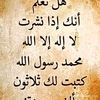 هل تعلم
أنك إذا نشرت
لا إله إلا الله
محمد رسول الله
كتبت لك ثلاثون